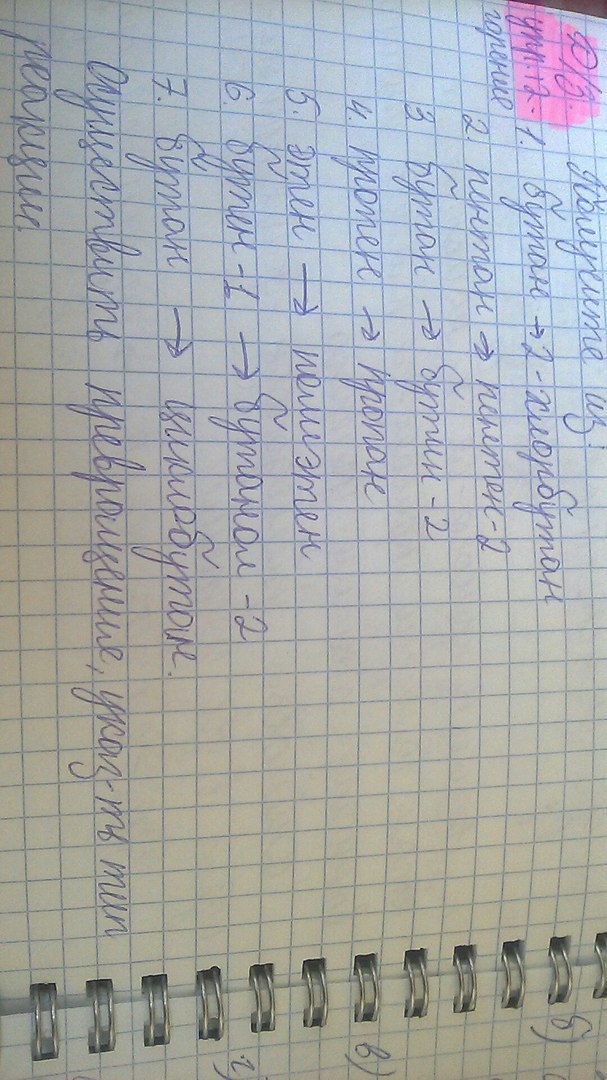 Д/З. Получите из:
упр.12. 1. бутан → 2-хлорбутан
горение 2. пентан → пентен-2
3. бутан → бутин-2
4. пропен → пропан
5. этен → полиэтен
6. бутен-1 → бутанол-2
7. бутан → циклобутан.
Осуществить превращение, указ-ть тип
реакции.
б)
в)
г)